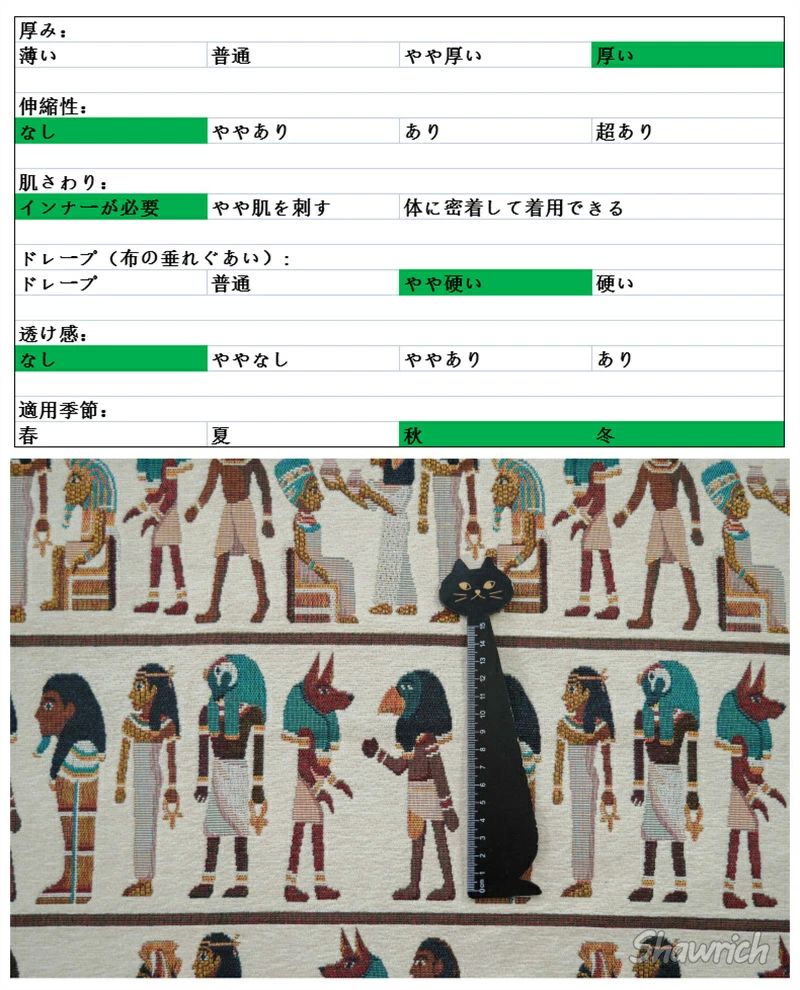 厚み:
薄い 普通 やや厚い 厚い
伸縮性:
なし ややあり あり 超あり
肌さわり:
インナーが必要 やや肌を刺す 体に密着して着用できる
ドレープ（布の垂れぐあい）:
ドレープ 普通 やや硬い 硬い
透け感:
なし ややなし ややあり あり
適用季節:
春 夏 秋 冬
15
14
13
12
11
10
9
8
7
6
5
4
3
2
1
0cm
Shawrich